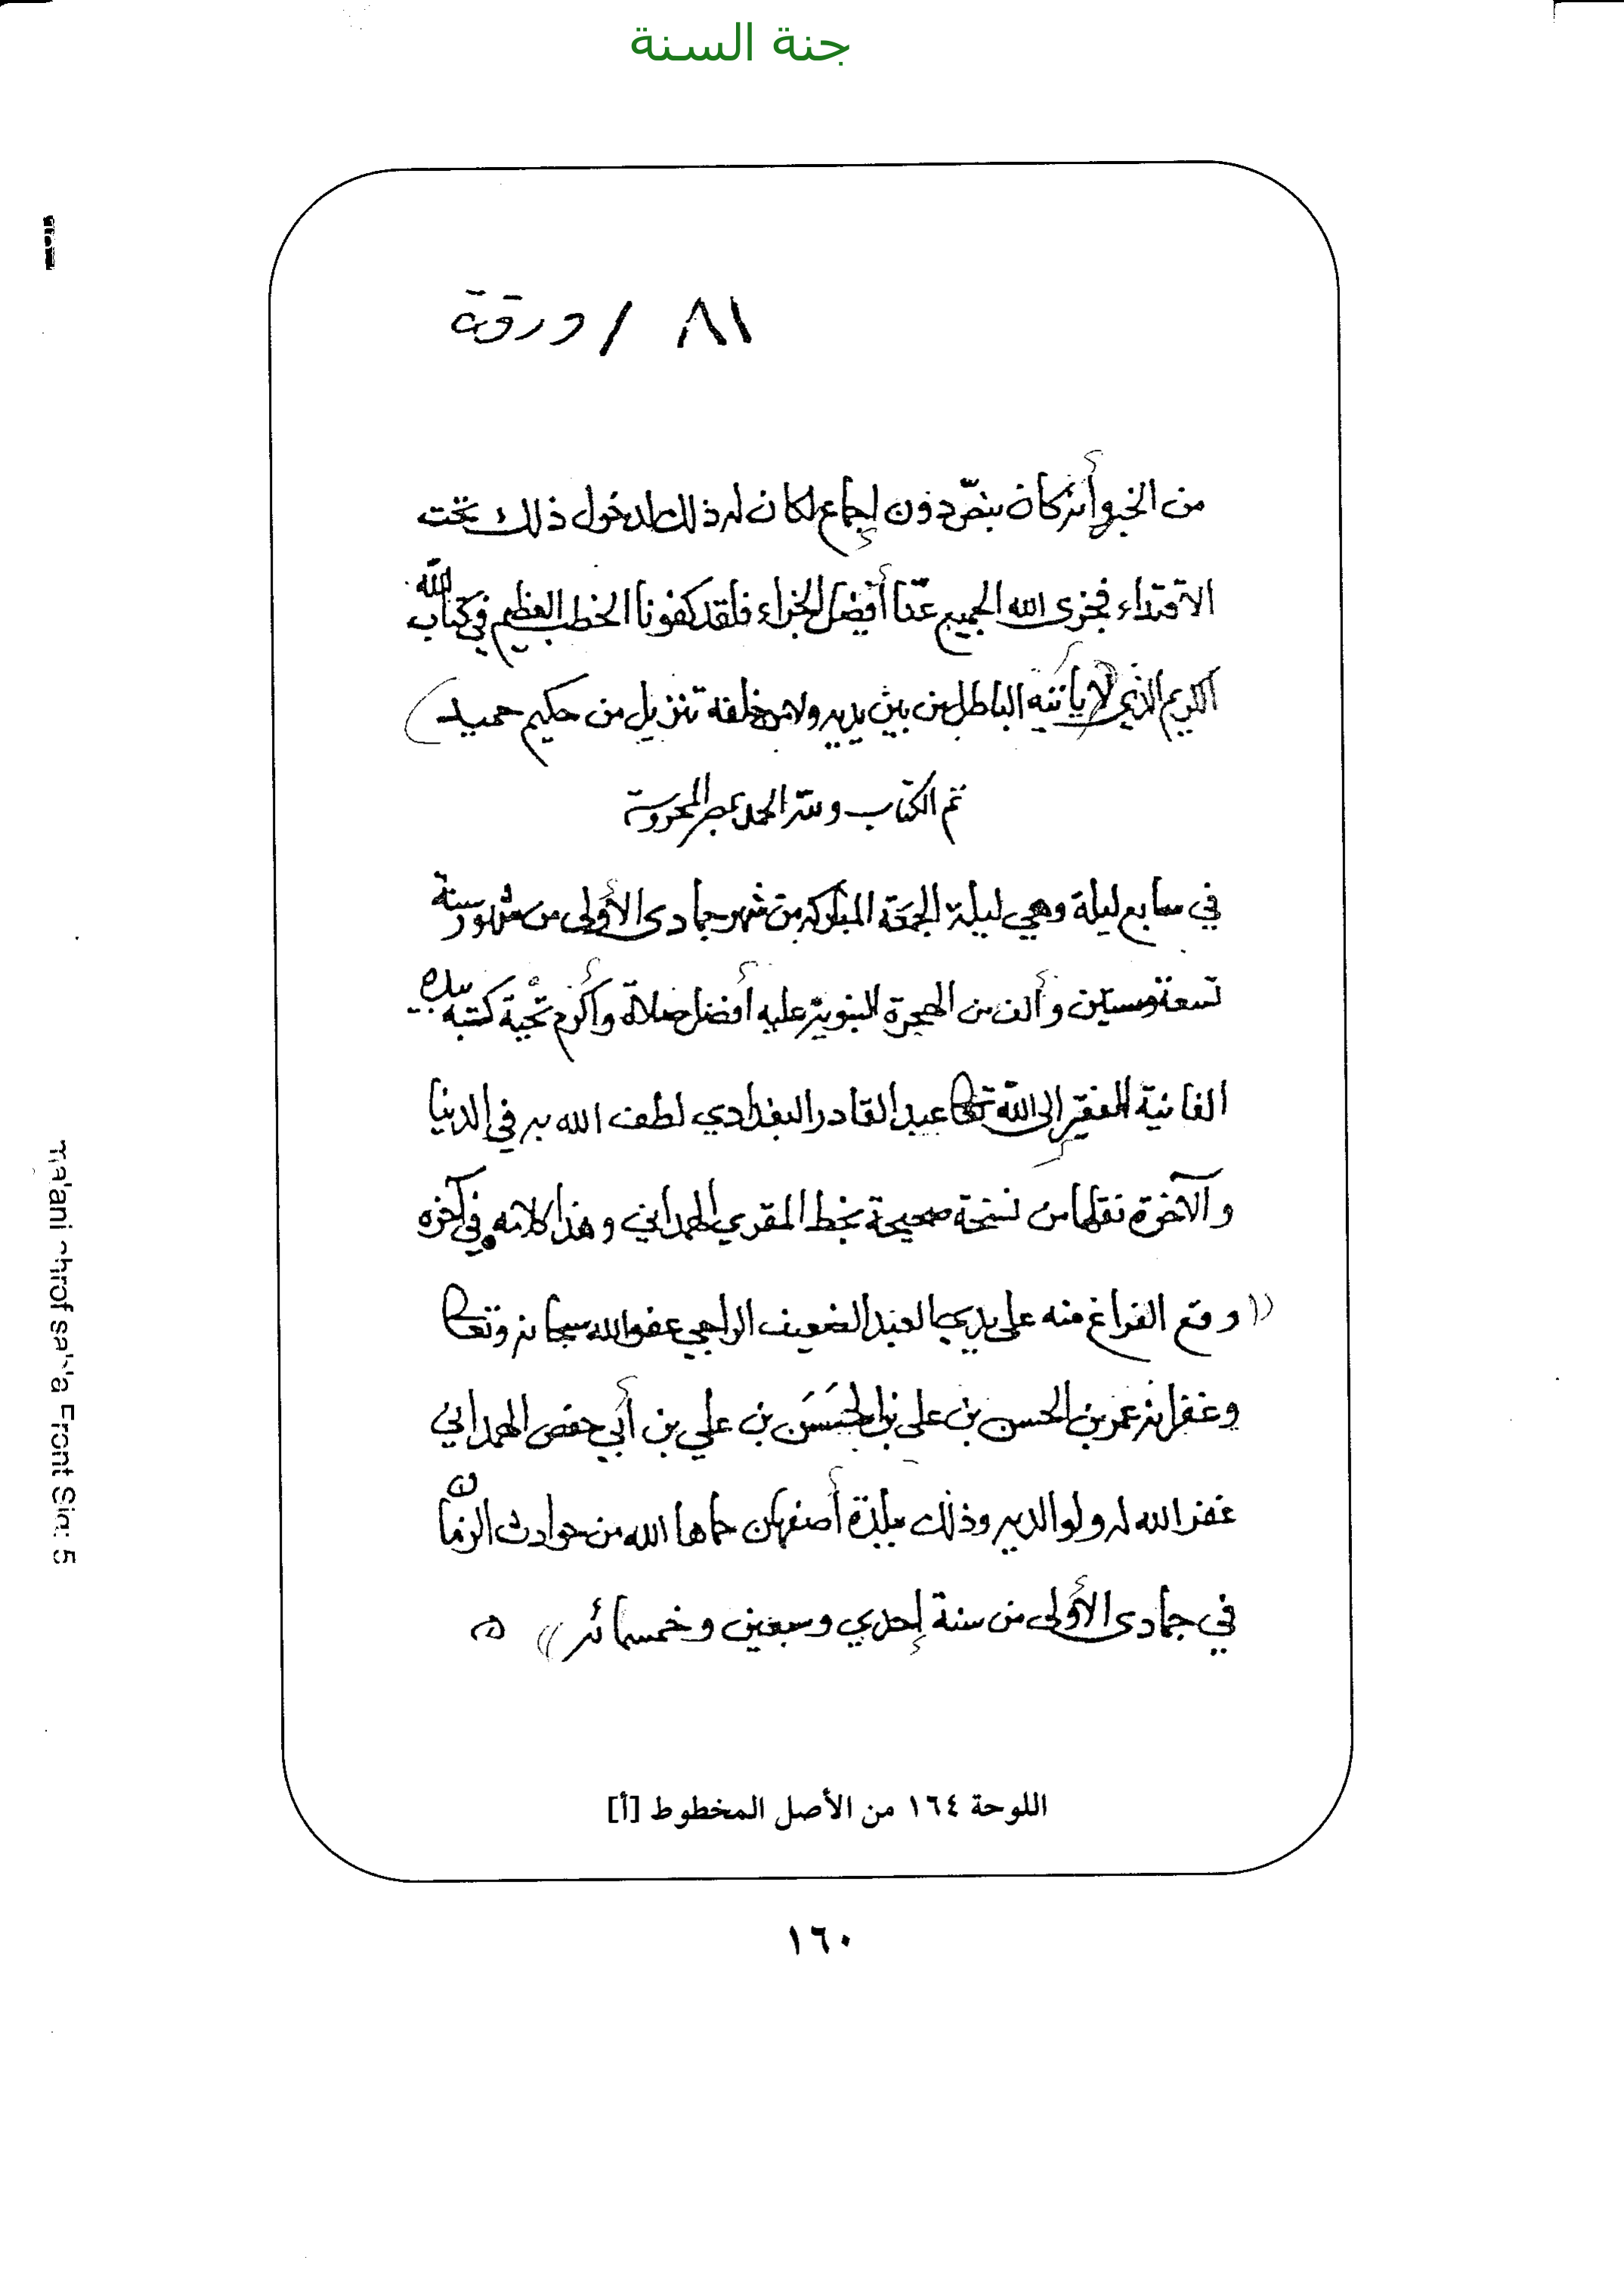 جنة السنة
٨١ / ورقة
من الخبر أنه كان بنصّ دون إجماع لكان له ذلك لدخول ذلك تحت
الاقتداء فجزى الله الجميع عنّا أفضل الجزاء فلقد كفونا الخطب العظيم في كتاب الله
الكريم الذي (لا يأتيه الباطل من بين يديه ولا من خلفه تنزيل من حكيم حميد)
تم الكتاب ولله الحمد بمصر المحروسة
في سابع ليلة وهي ليلة الجمعة المباركة من شهر جمادى الأولى من شهور سنة
تسعة وستين وألف من الهجرة النبوية عليه أفضل صلاة وأكرم تحية كتبه بيده
الفانية الفقير إلى الله تعالى عبد القادر البغدادي لطف الله به في الدنيا
والآخرة نقلها من نسخة صحيحة بخط المقري الهمداني وهذا كلامه في آخره
((وقع الفراغ منه على يدي العبد الضعيف الراجي عفو الله سبحانه وتعالى
وغفرانه عمر بن الحسن بن علي بن الحَسَن بن علي بن أبي حفص الهمداني
غفر الله له ولوالديه وذلك ببلدة أصفهان حماها الله من حوادث الزمان
في جمادى الأولى من سنة إحدي وسبعين وخمسمائه)) ه
اللوحة ١٦٤ من الأصل المخطوط [أ]
١٦٠